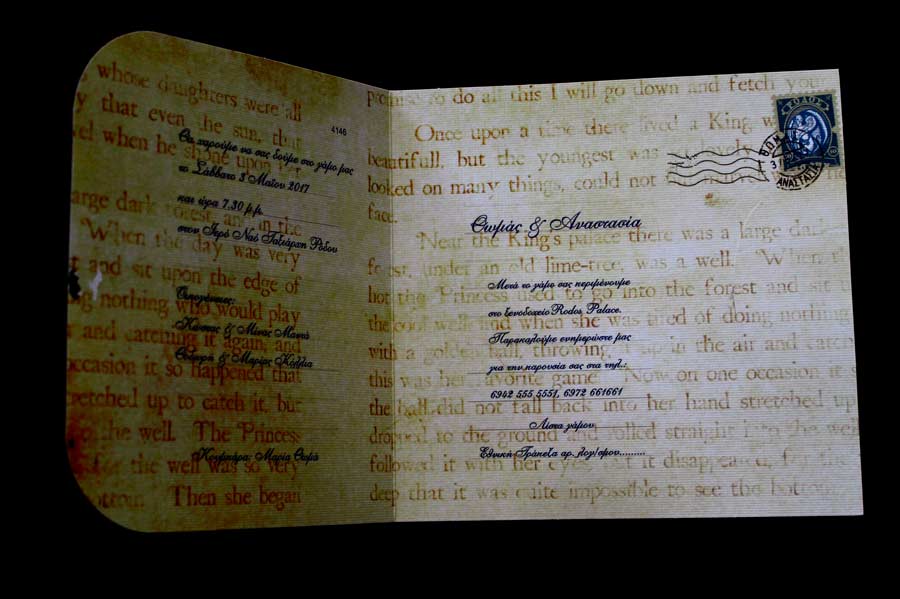 whose daughters were all
that even the sun, that
when he shone upon her
4146
Θα χαρούμε να σας δούμε στο γάμο μας
το Σάββατο 3 Μαΐου 2017
και ώρα 7.30 μ.μ.
στον Ιερό Ναό Ταξιάρχη Ρόδου
large dark forest, and in the
When the day was very
and sit upon the edge of
nothing who would play
Οικογένειες:
Κώστας & Μίνας Μαντά
and catching it again, and
Θοδωρή & Μαρίας Κόλλια
occasion it so happened that
stretched up to catch it, but
the well. The Princess
Κουμπάρα: Μαρία Θωμά
for the well was so very
bottom. Then she began
promise to do all this I will go down and fetch your
ΡΟΔΟΣ
ΑΝΑΣΤΑΣΙΑ
Once upon a time there lived a King
beautifull, but the youngest was so lovely
looked on many things, could not
face.
Θωμάς & Αναστασία
Near the King's palace there was a large dark
forest, under an old lime-tree, was a well. When the
Μετά το γάμο σας περιμένουμε
hot the Princess used to go into the forest and sit
στο ξενοδοχείο Rodos Palace.
the cool well and when she was tired of doing nothing
Παρακαλούμε ενημερώστε μας
with a golden ball, throwing it up in the air and catch
για την παρουσία σας στα τηλ.:
this was her favorite game. Now on one occasion it
6942 555 5551, 6972 661661
the ball did not fall back into her hand stretched up
Λίστα γάμου
dropped to the ground and rolled straight into the well
Εθνική Τράπεζα αρ. λογ/σμου.........
followed it with her eyes but it disappeared, for
deep that it was quite impossible to see the bottom.